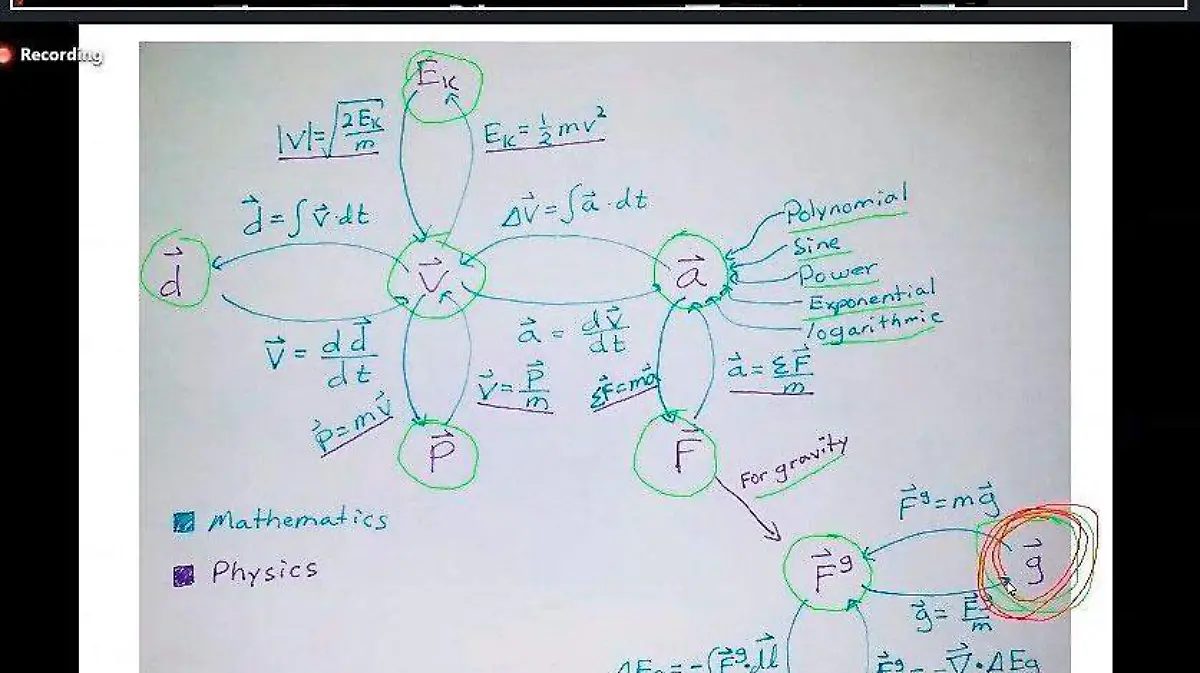 Recording
E_K
|V|=√(2E_K/m)
E_K=½mv²
d⃗=∫v⃗·dt
ΔV⃗=∫a⃗·dt
Polynomial
Sine
Power
Exponential
logarithmic
d⃗
V⃗
a⃗
V⃗ = dd⃗/dt
a⃗ = dv⃗/dt
P⃗=mV⃗
V⃗=P⃗/m
ΣF⃗=ma⃗
a⃗=ΣF⃗/m
P⃗
F⃗
For gravity
Mathematics
Physics
F⃗ᵍ=mg⃗
F⃗ᵍ
g⃗
g⃗=F⃗/m
ΔEg=-∫F⃗ᵍ·dl⃗
F⃗ᵍ=-∇⃗·ΔEg